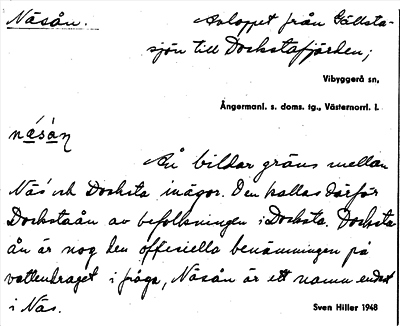 Näsån.
Avloppet från Gällsta-
sjön till Dockstafjärden;
Vibyggerå sn,
Ångermanl. s. doms. tg., Västernorrl. l.
nä́så̀n
Ån bildar gräns mellan
Näs och Docksta mägor. Den kallas därför
Dockstaån av befolkningen i Docksta. Docksta-
ån är nog den officiella benämningen på
vattendraget i fråga, Näsån är ett namn endast
i Näs.
Sven Hiller 1948